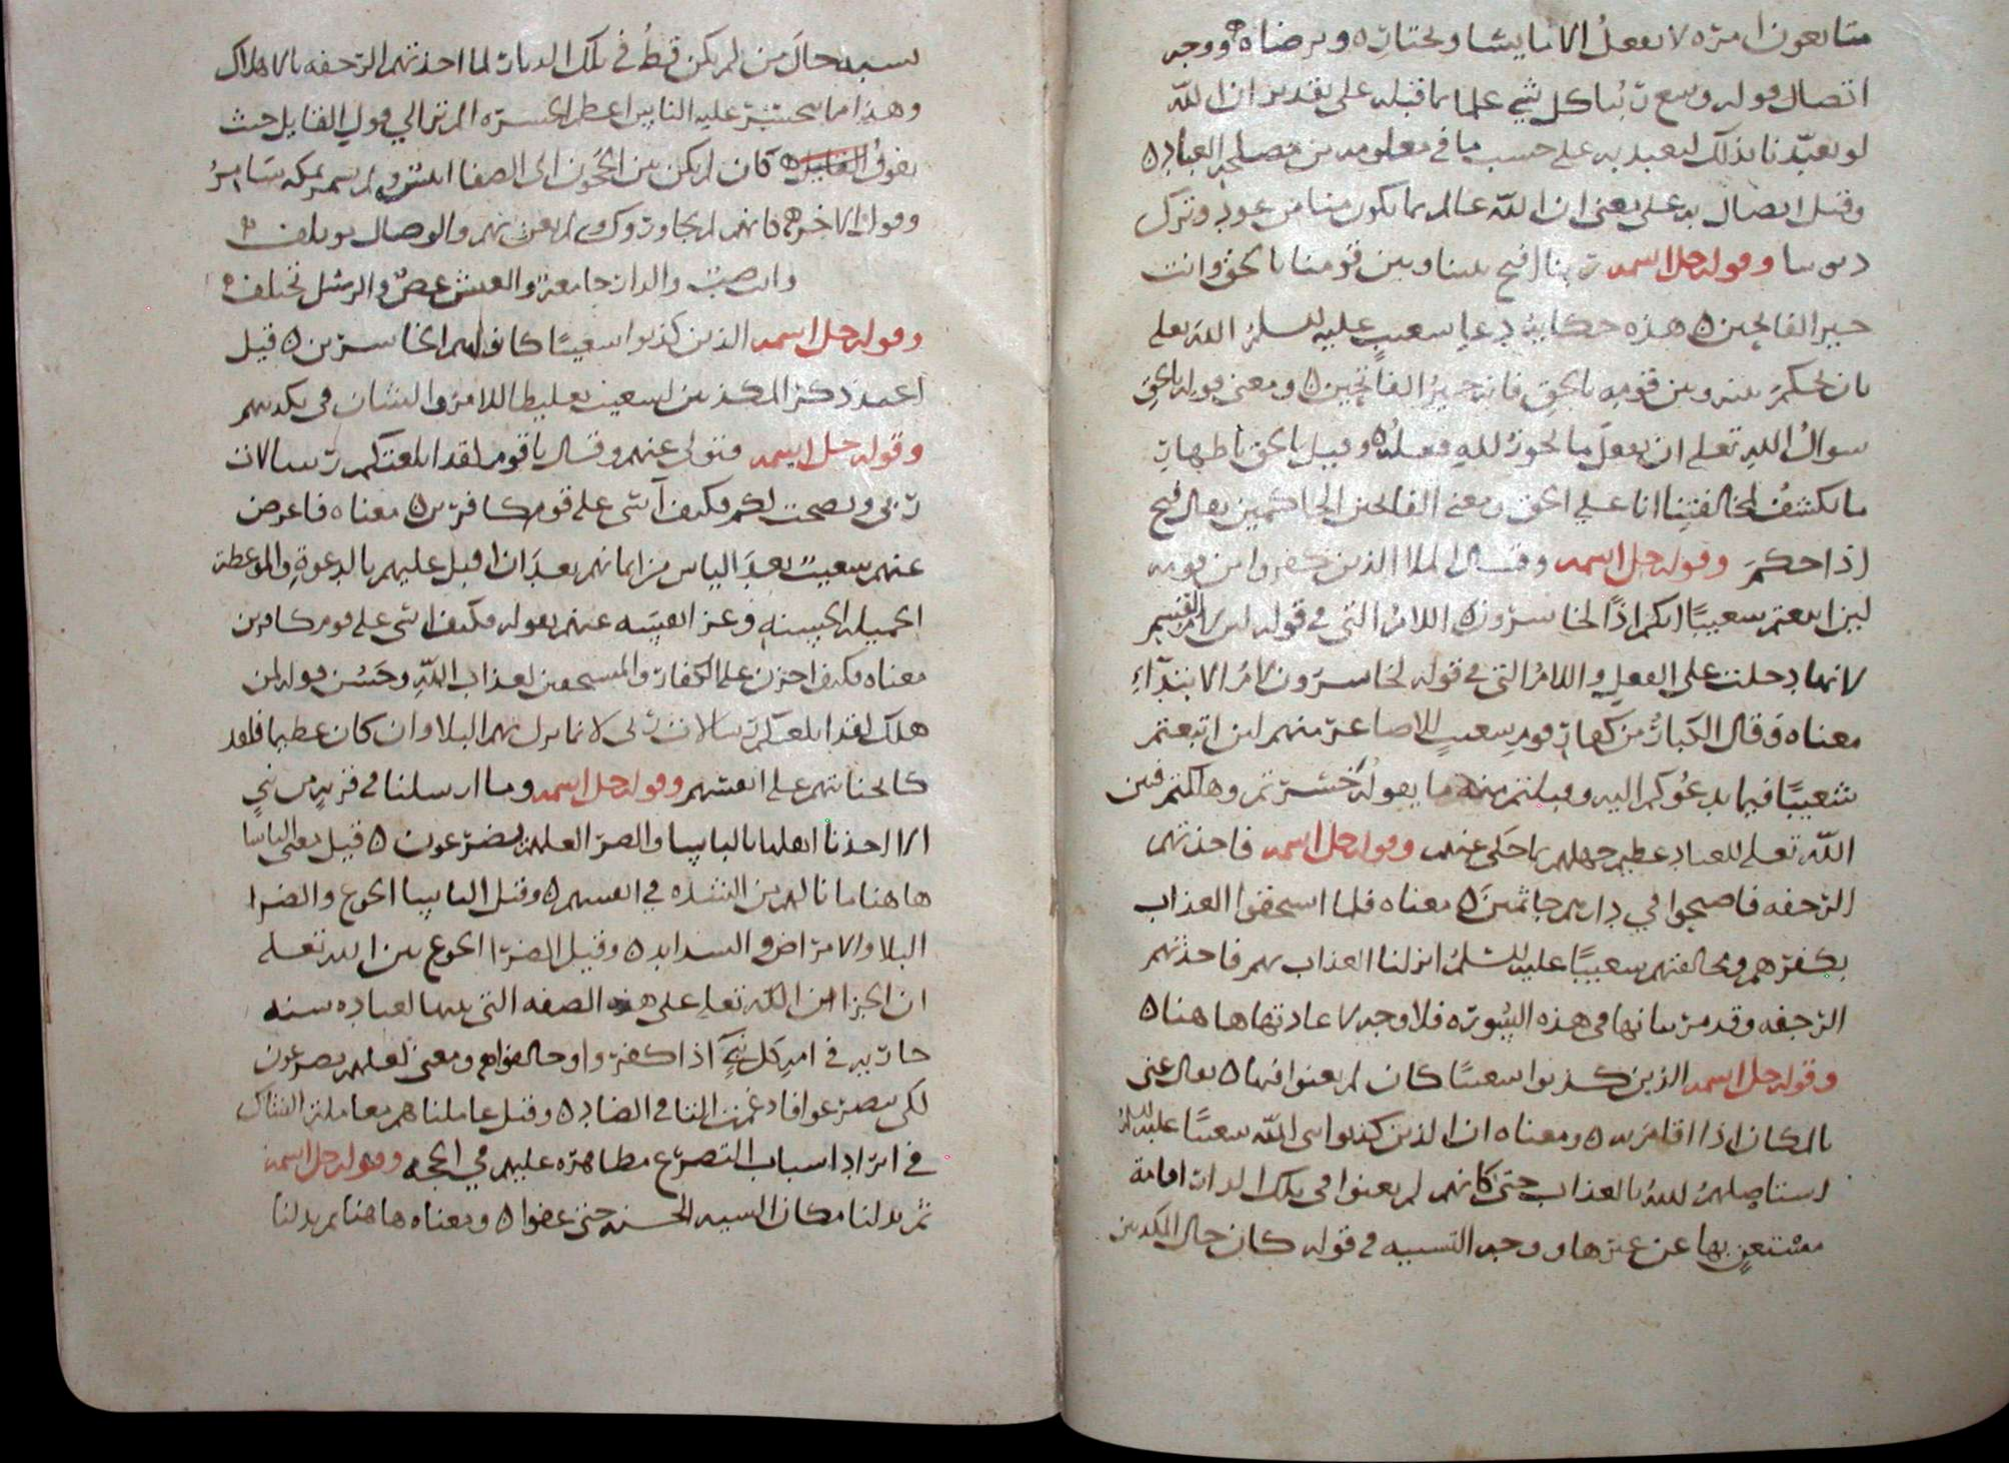 متابعون امره لا يفعل الا ما يشا ويختاره ويرضاه ووجه
اتصال قوله وسع ربنا كل شي علما بما قبله على تقدير ان الله
لو تعبّدنا بذلك لتعبد به على حسب ما في معلومه من مصلحه العباد ٥
وقيل اتصال به على معنى ان الله عالم بما يكون منا من عود وترك
وقوله جل اسمه ربنا افتح بيننا وبين قومنا بالحق وانت
خير الفاتحين ٥ هذه حكاية دعا شعيب عليه السلم الله تعلى
بان يحكم بينه وبين قومه بالحق فانه خير الفاتحين ٥ ومعنى قوله بالحق
سوال الله تعلى ان يفعل ما يجوز لله فعله ٥ وقيل بالحق باظهار
ما يكشف لمخالفتنا انا على الحق ومعنى الفاتحين الحاكمين يقال فتح
اذا حكم وقوله جل اسمه وقال الملا الذين كفروا من قومه
لين اتبعتم شعيبًا انكم اذًا لخاسرون ٥ اللام التي في قوله لين لام القسم
لانها دخلت على الفعل واللام التي في قوله لخاسرون لام الابتداء
معناه وقال الكبار من كفار قوم شعيب للاصاغر منهم لين اتبعتم
شعيبًا فيما يدعوكم اليه وقبلتم منه ما يقوله خسرتم وهلكتم فبين
الله تعلى للعباد عظيم جهلهم بما حكى عنهم وقوله جل اسمه فاخذتهم
الرجفه فاصبحوا في دارهم جاثمين ٥ معناه فلما استحقوا العذاب
بكفرهم ومخالفتهم شعيبًا عليه السلم انزلنا العذاب بهم فاخذتهم
الرجفه وقد مر بيانها في هذه السورة فلا وجه لاعادتها هاهنا ٥
وقوله جل اسمه الذين كذبوا شعيبًا كان لم يغنوا فيها ٥ يقال غنى
بالمكان اذا اقام به ٥ ومعناه ان الذين كذبوا نبى الله شعيبًا عليه السلم
استاصلهم الله بالعذاب حتى كانهم لم يغنوا في تلك الدار اقامة
مستغن بها عن غيرها ووجه التشبيه في قوله كان حال المكذبين
يشبه حال من لم يكن قط في تلك الديار لما اخذتهم الرجفه بالاهلاك
وهذا مما يتحسر عليه الناس اعظم الحسره الم تر الي قول القايل حيث
يقول كان لم يكن بين الحجون الى الصفا انيس ولم يسمر بمكه سامرُ
وقول الاخر
والدار جامعة والعيش غض والرسل تختلف ٥
وقوله جل اسمه الذين كذبوا شعيبًا كانوا هم الخاسرين ٥ قيل
اعيد ذكر المكذبين لشعيب تغليظا للامر والشان في تكذيبهم
وقوله جل اسمه فتولى عنهم وقال يا قوم لقد ابلغتكم رسالات
ربي ونصحت لكم فكيف آسى على قوم كافرين ٥ معناه فاعرض
عنهم شعيب بعد الياس من ايمانهم بعد ان اقبل عليهم بالدعوة والموعظة
الجميله الحسنه وعزا نفسه عنهم بقوله فكيف اسى على قوم كافرين
معناه فكيف احزن على الكفار والمستحقين لعذاب الله وحَسُن قوله لمن
هلك لقد ابلغتكم رسالات ربى لان ما نزل بهم البلا وان كان عظيما فلقد
كانجنايتهم على انفسهم وقوله جل اسمه وما ارسلنا في قريه من نبي
الا اخذنا اهلها بالباسا والضرا لعلهم يضرعون ٥ قيل معنى الباسا
هاهنا ما نالهم من الشده في انفسهم ٥ وقيل الباسا الجوع والضرا
البلا والامراض والشدايد ٥ وقيل الضرا الجوع بين الله تعلى
ان الله تعلى على هذه الصفه التي بينها لعباده سنه
جاريه في امر كل نبي اذا كفروا ومعنى لعلهم يضرعون
لكى يتضرعوا فادغمت التا في الضاد ٥ وقيل عاملناهم معاملة الشاك
في ايراد اسباب التضرع مظاهره عليهم في الحجه وقوله جل اسمه
ثم بدلنا مكان السيه الحسنه حتى عفوا ٥ ومعناه هاهنا ثم بدلنا